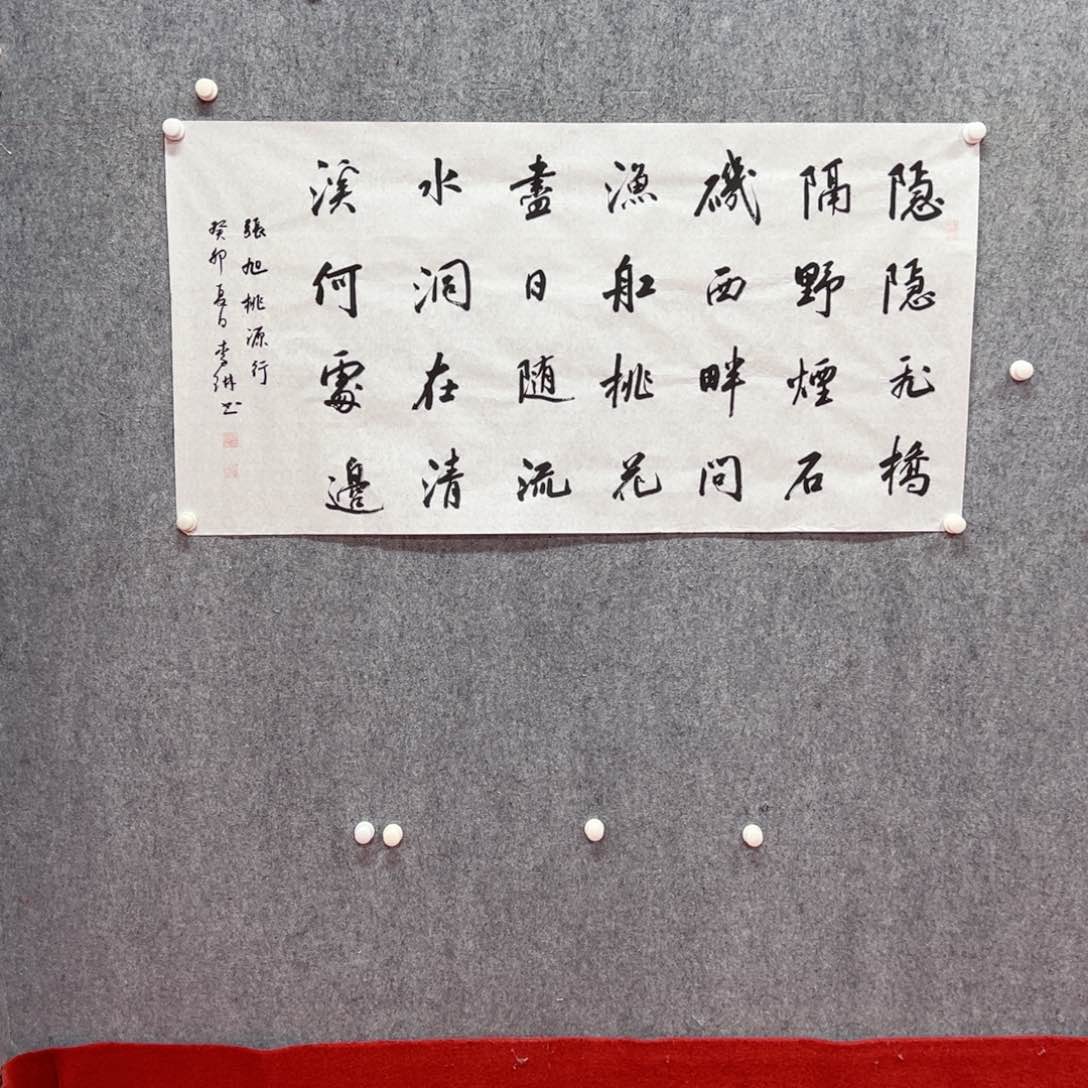 隐隐飛橋
隔野煙石
磯西畔问
漁舡桃花
盡日随流
水洞在清
溪何處邊
張旭桃源行
癸卯夏日李书